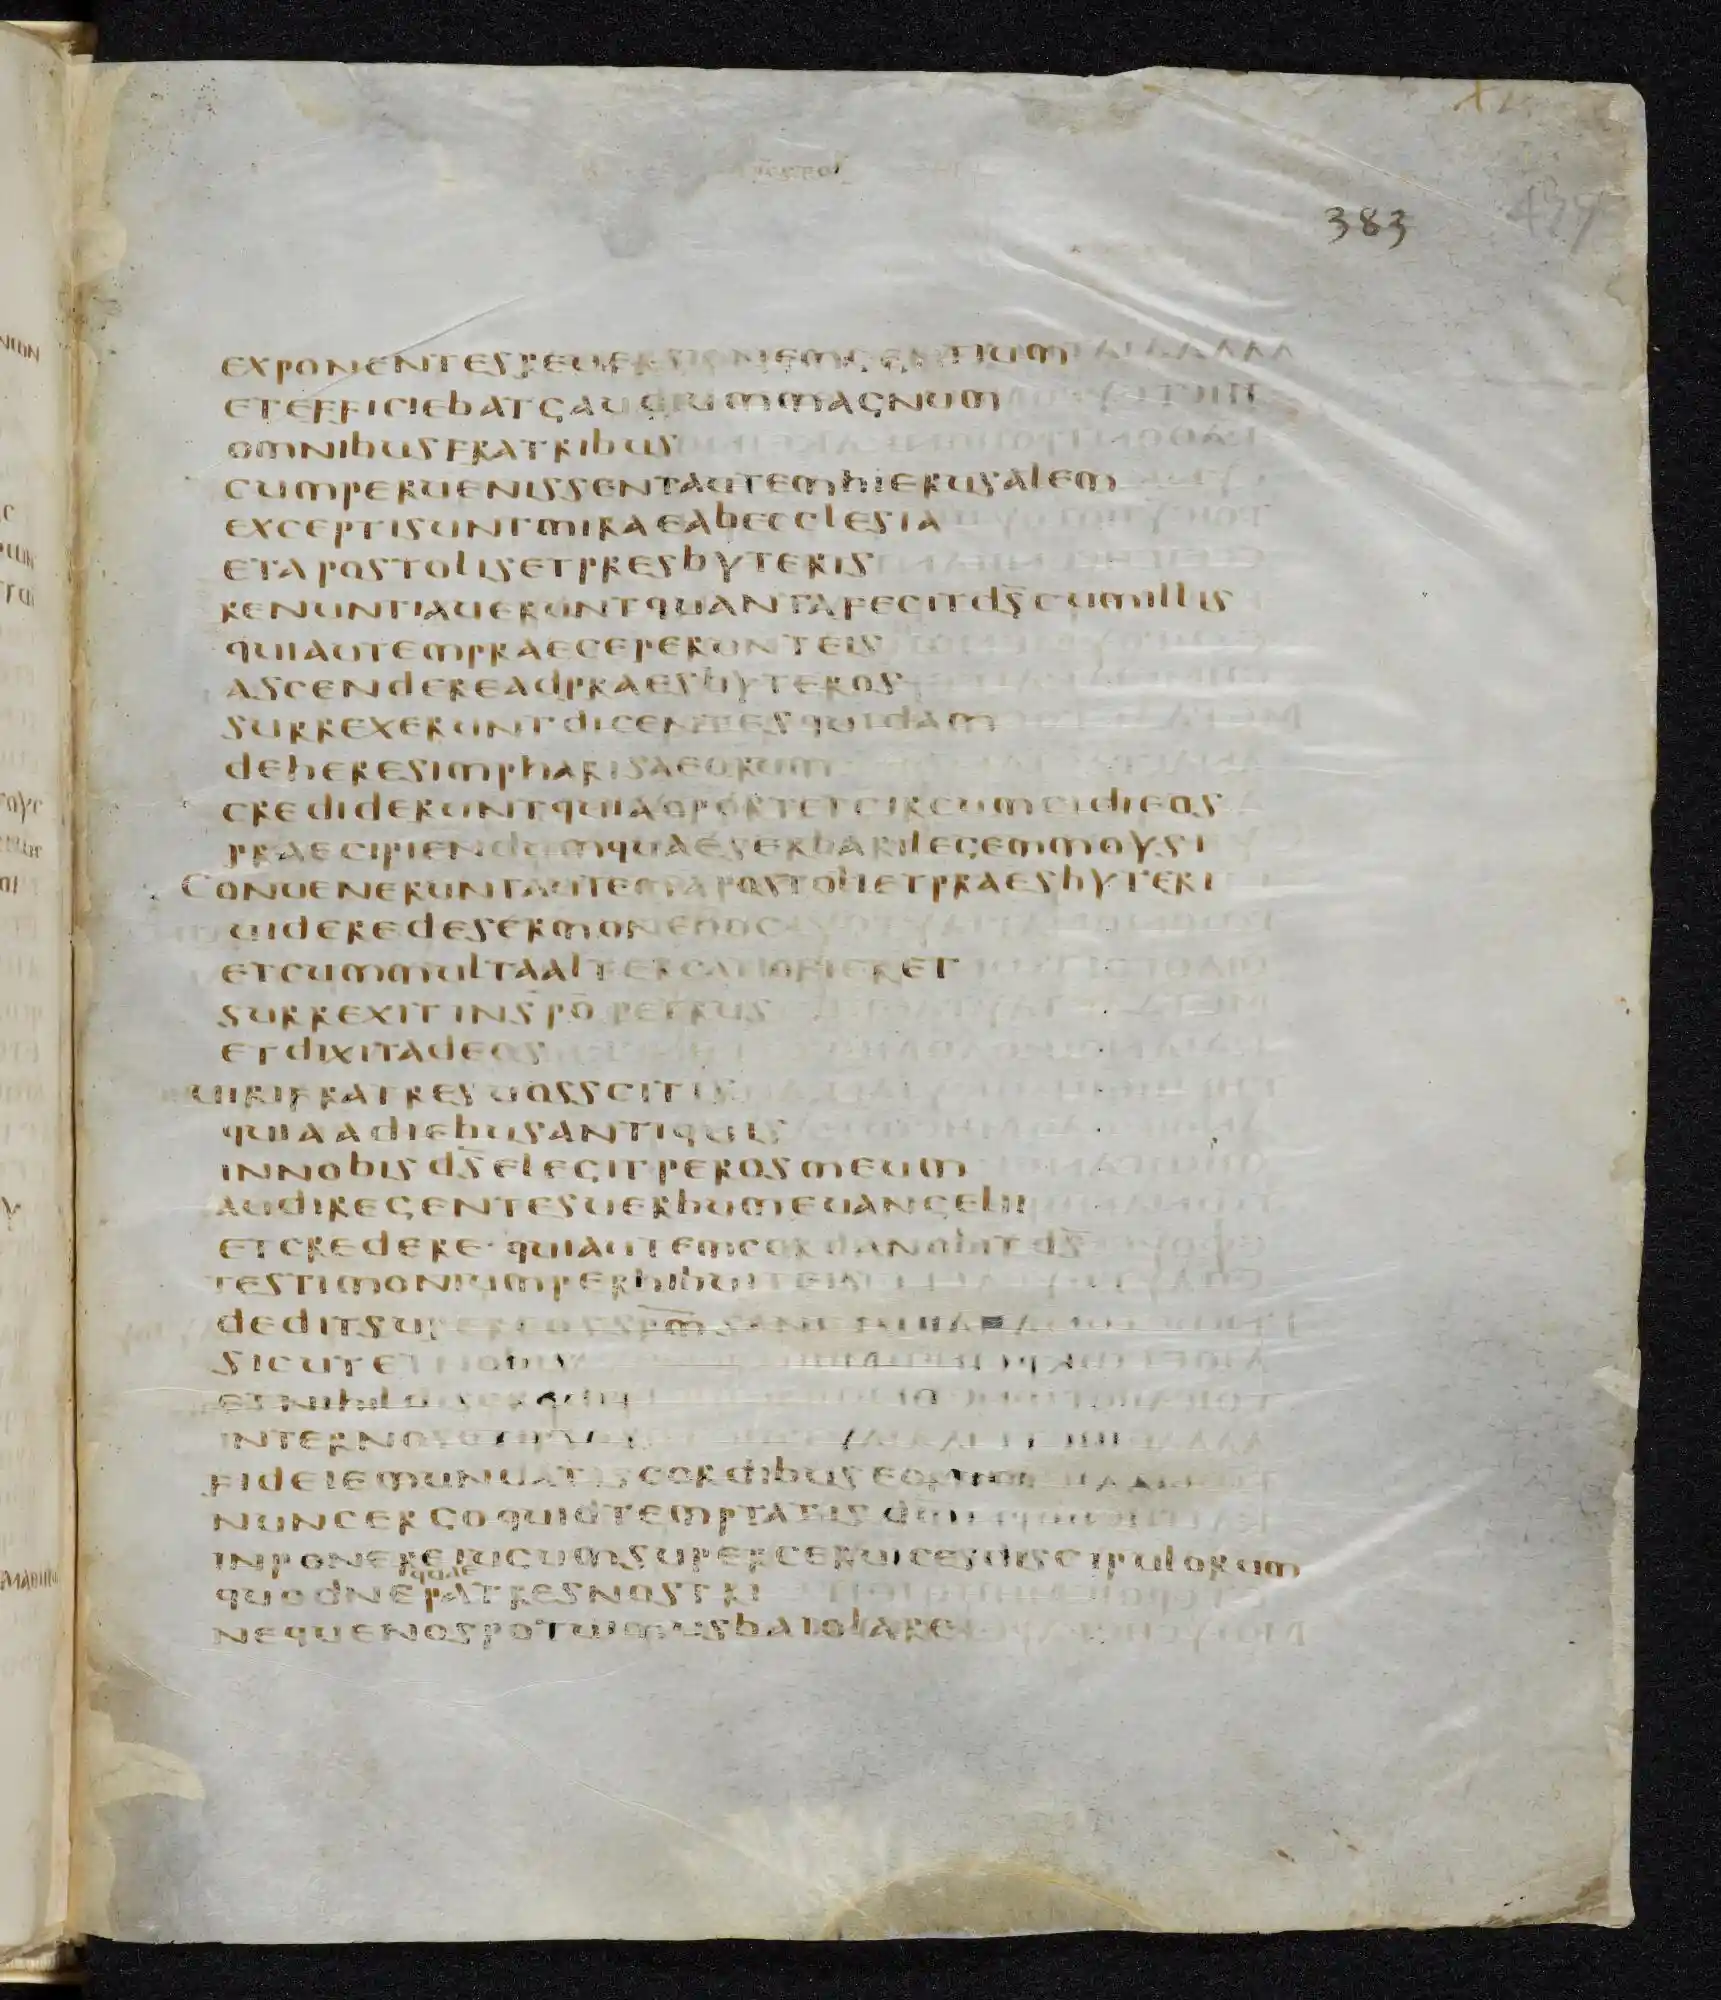 383
EXPONENTESREUERSIONEMGENTIUM
ETEFFICIEBATGAUDIUMMAGNUM
OMNIBUSFRATRIBUS
CUMPERUENISSENTAUTEMHIERUSALEM
EXCEPTISUNTMIRAEABECCLESIA
ETAPOSTOLISETPRESBYTERIS
RENUNTIAUERUNTQUANTAFECITDS̄CUMILLIS
QUIAUTEMPRAECEPERUNTEIS
ASCENDEREADPRAESBYTEROS
SURREXERUNTDICENTESQUIDAM
DEHERESIMPHARISAEORUM
CREDIDERUNTQUIAOPORTETCIRCUMCIDIEOS
PRAECIPIENDUMQUAESERBARILEGEMMOYSI
CONUENERUNTAUTEMAPOSTOLIETPRAESBYTERI
UIDEREDESERMONEHOC
ETCUMMULTAALTERCATIOFIERET
SURREXITINS̄PŌPETRUS
ETDIXITADEOS
UIRIFRATRESUOSSCITIS
QUIAADIEBUSANTIQUIS
INNOBISDS̄ELEGITPEROSMEUM
AUDIREGENTESUERBUMEUANGELII
ETCREDERE·QUIAUTEMCORDANOBITDS̄
TESTIMONIUMPERHIBUITEIS
DEDITSUPEREOSSPM̄SANC
SICUTETNOBIS
ETNIHIL
INTERNOS
FIDEIEMUNDATISCORDIBUSEORUM
NUNCERGOQUIDTEMPTATISDM̄
INPONEREIUGUMSUPERCERUICESDISCIPULORUM
QUAE
QUODNEPATRESNOSTRI
NEQUENOSPOTUIMUSBAIOLARE